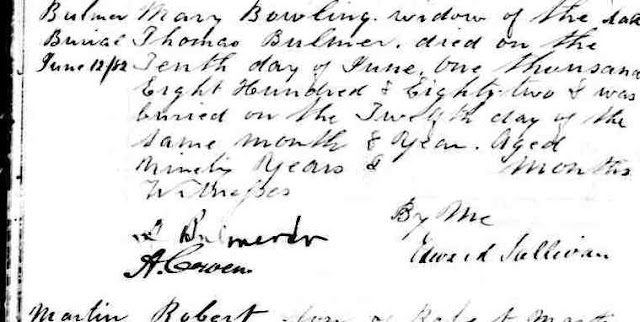 Bulmer Mary Bowling. widow of the late
Burial Thomas Bulmer. died on the
June 12/82 Tenth day of June, One thousand
Eight Hundred & Eighty-two & was
buried on the Twelfth day of the
same month & Year. Aged
Ninety Years & Months
Witnesses
By Me
Bulmer
Edward Sullivan
A. Cowen
Martin Robert Son of Robert Mart